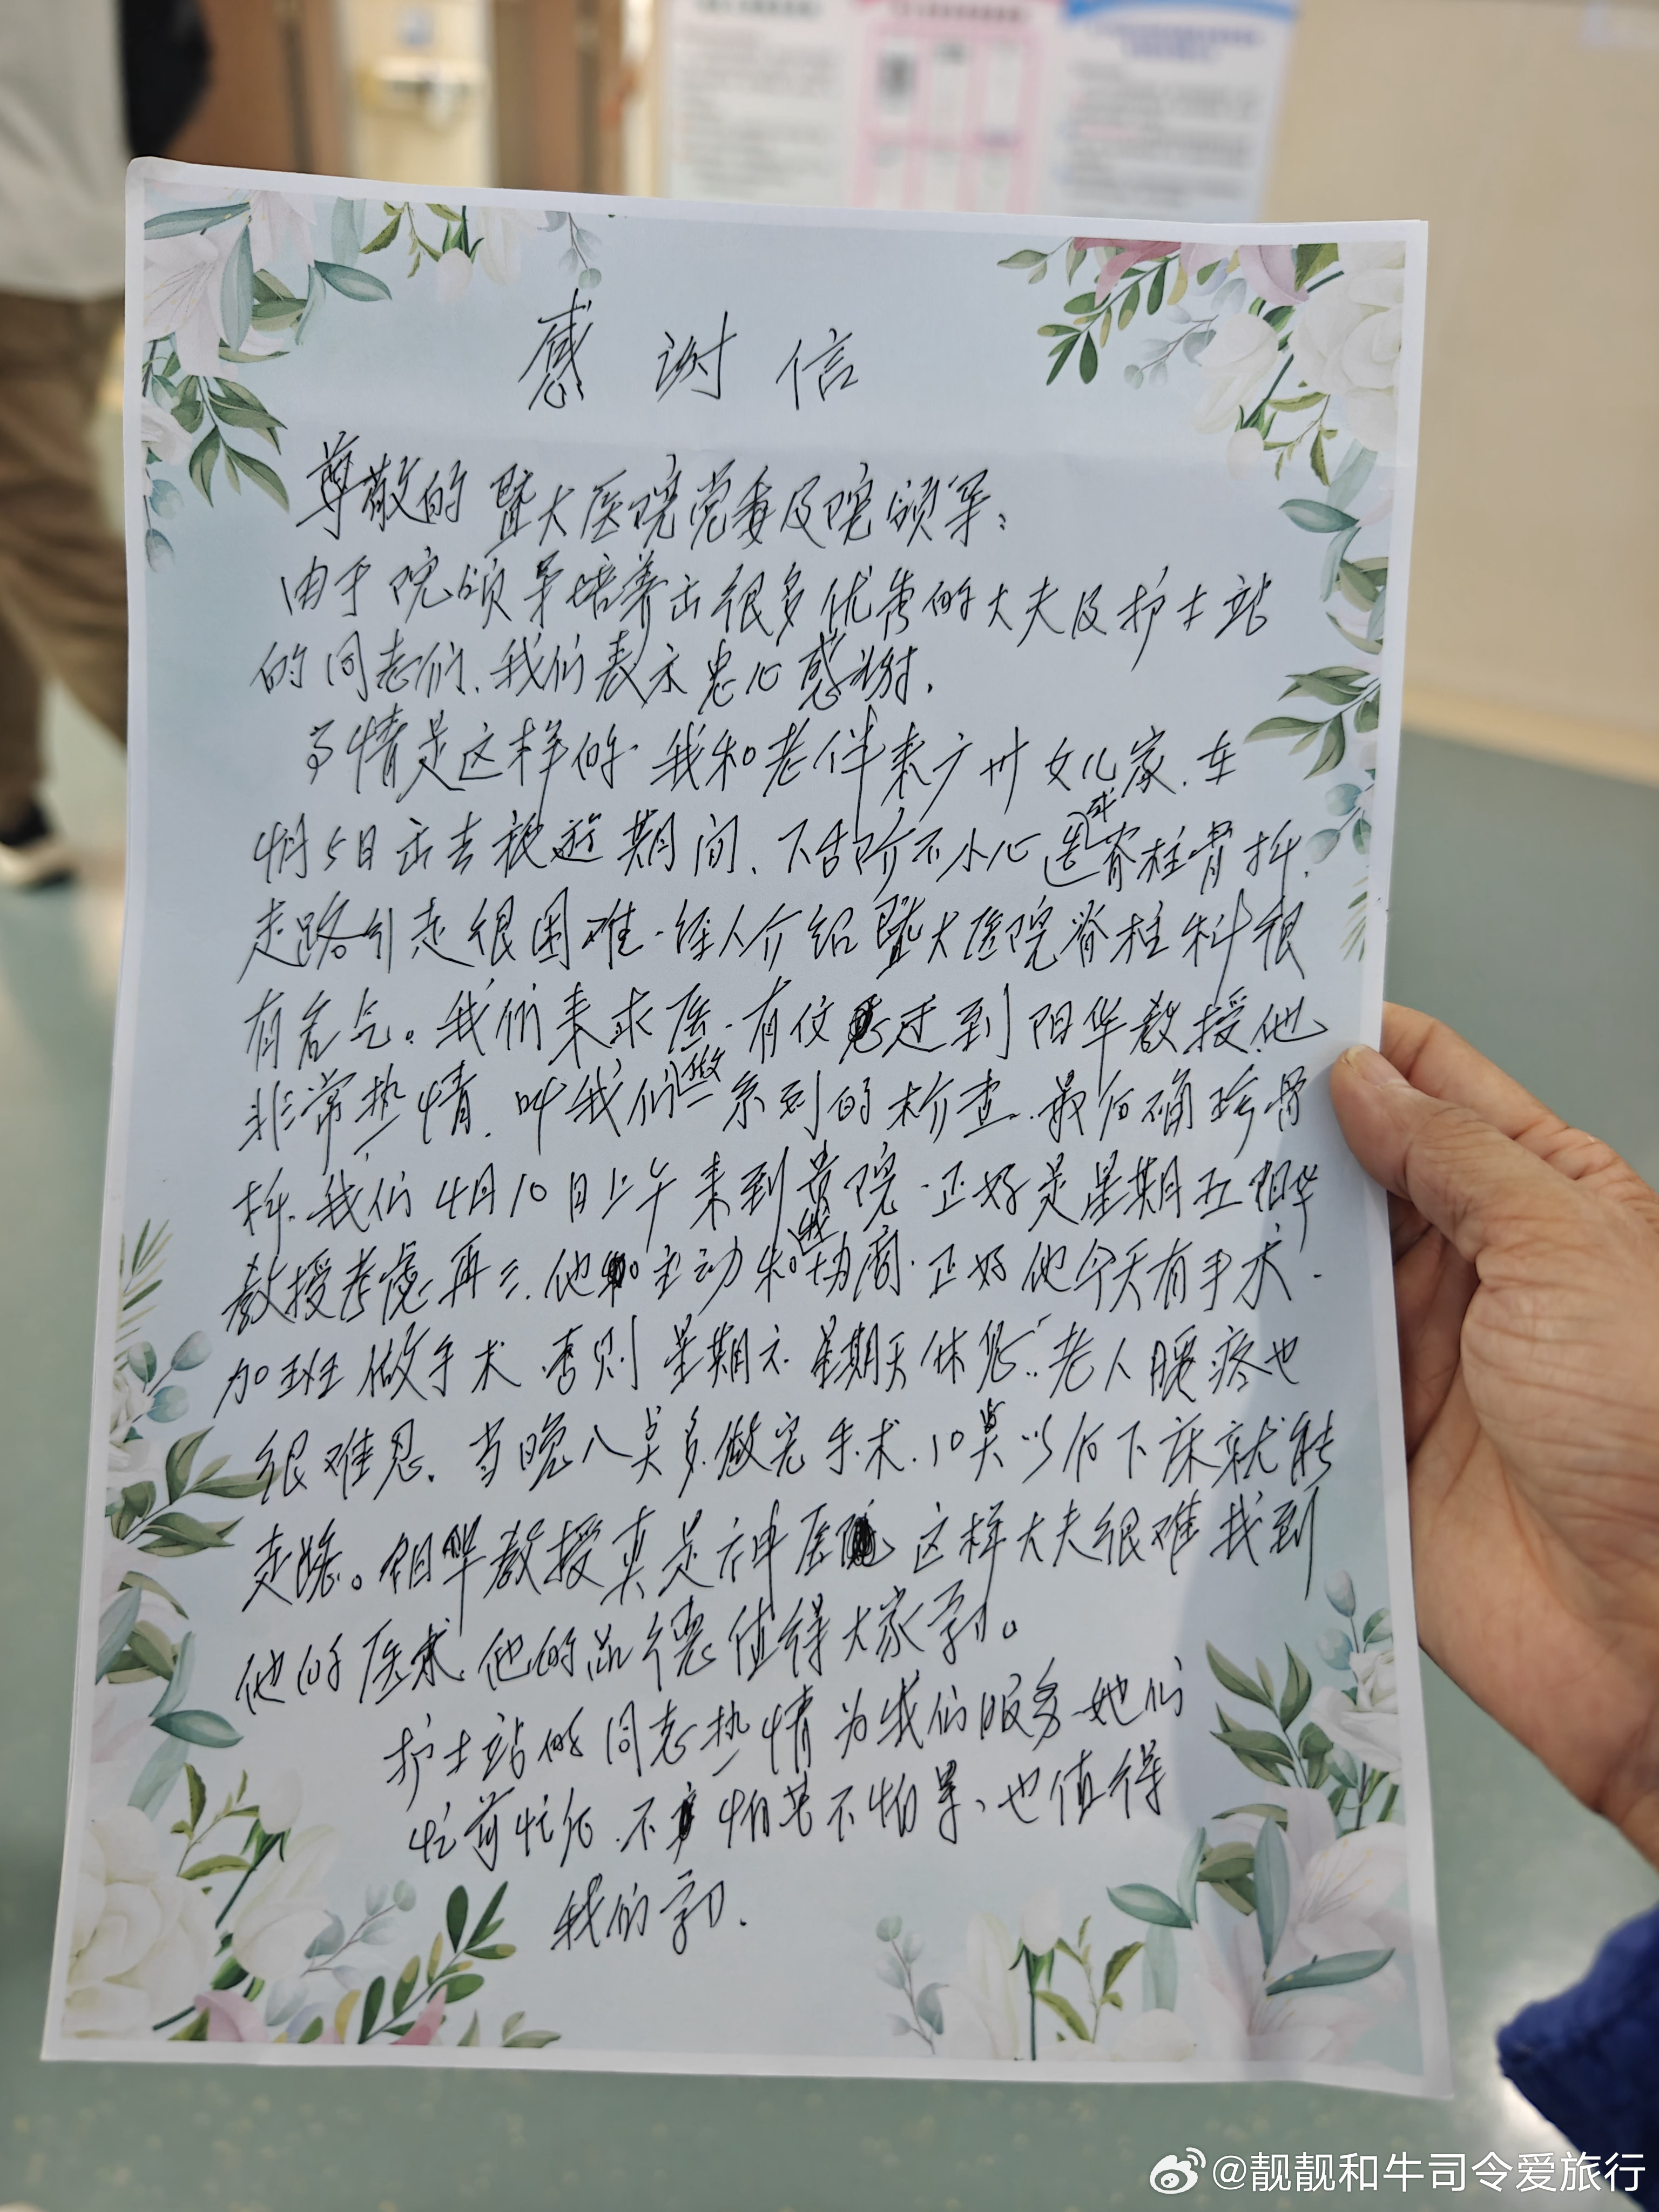 感谢信
尊敬的暨大医院党委及院领导：
由于院领导培养出很多优秀的大夫及护士站
的同志们、我们表示忠心感谢.
事情是这样的.我和老伴来广州女儿家.在
4月5日出去旅游期间、下台阶不小心造成脊柱骨折.
走路引起很困难.经人介绍暨大医院脊柱科很
有名气。我们来求医.有仅 还到阳华教授.他
非常热情.叫我们做一系列的检查.最后确珍骨
折.我们4月10日上午来到贵院.正好是星期五阳华
教授考虑再三.他主动和我协商.正好他今天有手术.
加班做手术.否则星期六.星期天休息.老人腰疼也
很难忍.当晚八点多做完手术.10点以后下床就能
走路。阳华教授真是神医 这样大夫很难找到
他的医术.他的品德值得大家学习。
护士站的同志热情为我们服务.她们
忙前忙后.不怕苦不怕累、也值得
我们学习.
@靓靓和牛司令爱旅行